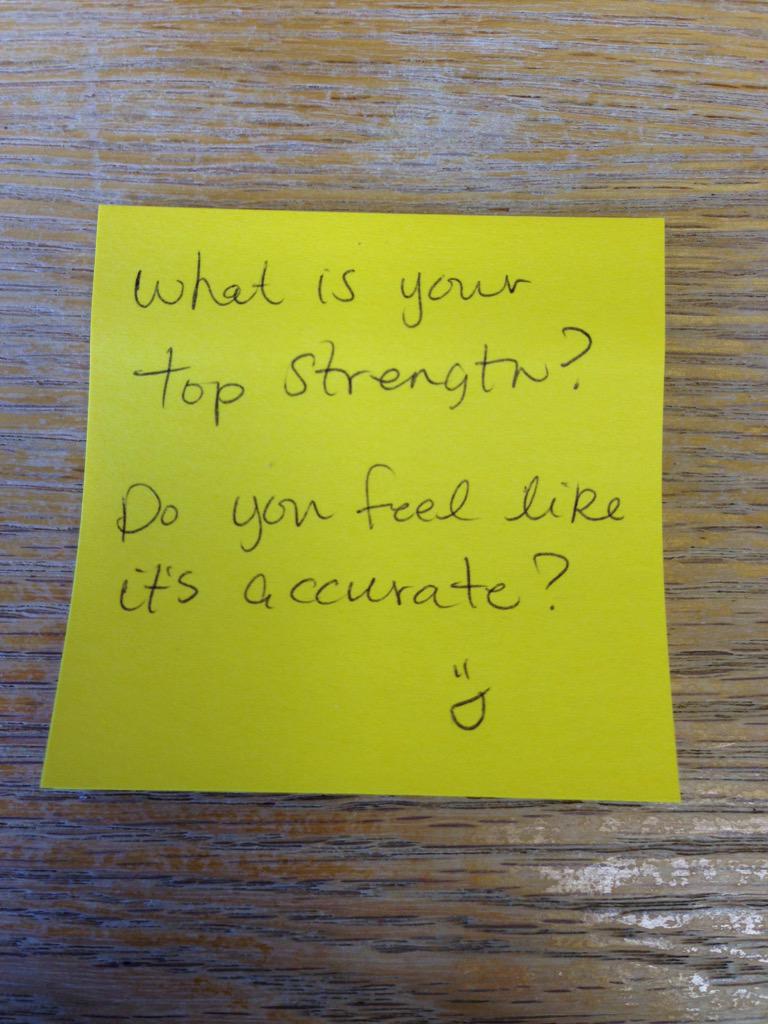 What is your
top strength?
Do you feel like
it's accurate?